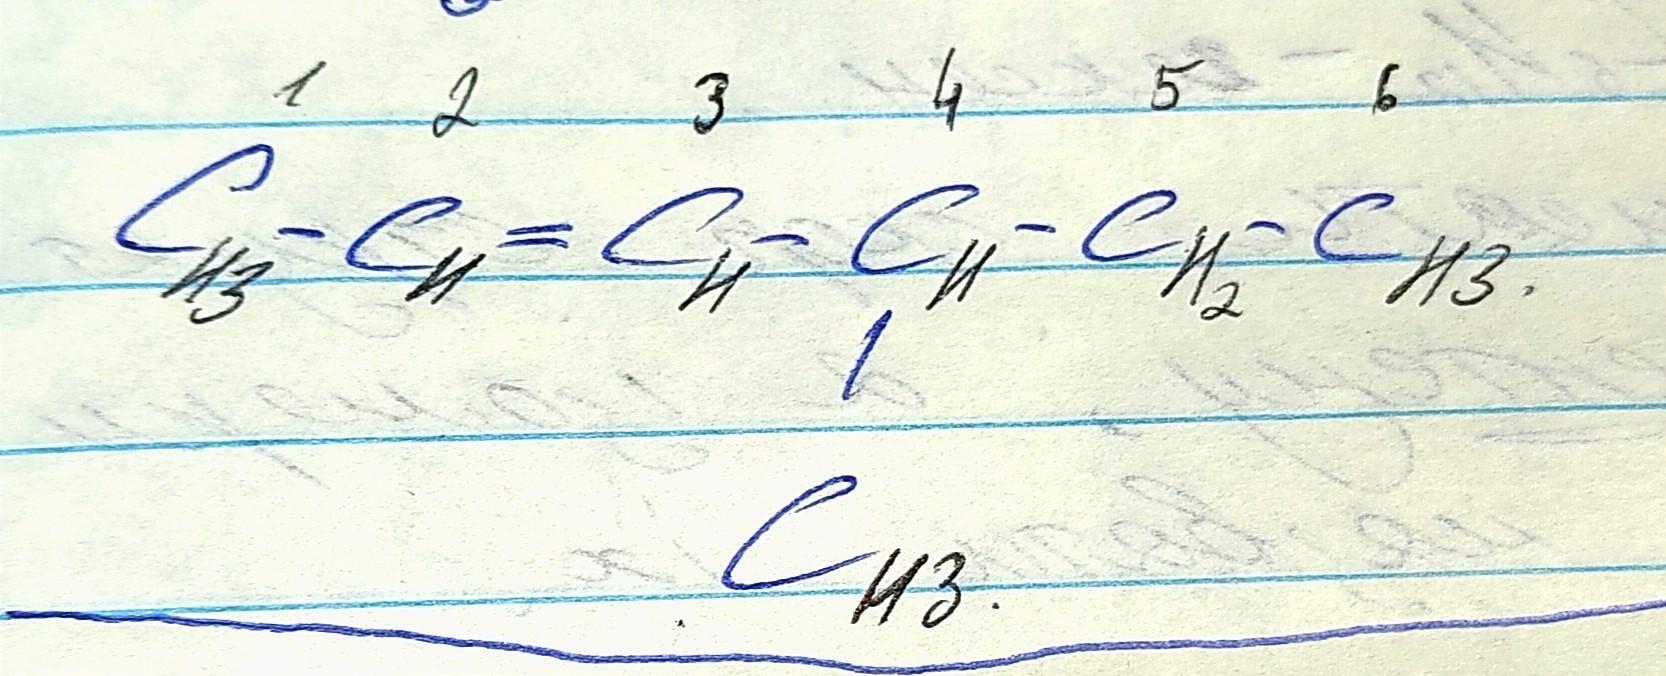 1 2 3 4 5 6
CH3-CH=CH-CH-CH2-CH3.
|
CH3.